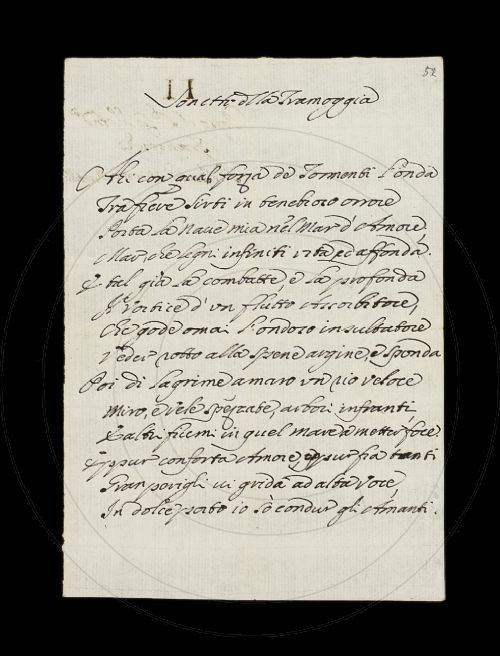 52
II
Sonetti della Tramoggia
Ahi con qual forza de Tormenti l'onda
Tra fiere Sirti in tenebroso orrore
Porta la Nave mia nel Mar d'Amore,
Mar, che legni infiniti urta, ed affonda.
E tal già la combatte, e la profonda
Vortice d'un flutto Assorbitore,
Che gode omai l'ondoso insultatore
Veder rotto alla Spene argine, e sponda
Poi di lagrime amaro un rio veloce
Miro, e Vele spezzate, arbori infranti
altri fiumi in quel mare a metter foce.
Eppur conforta Amore, eppur fra tanti
Gran perigli ei grida ad alta voce,
In dolce porto io sò condur gli Amanti.